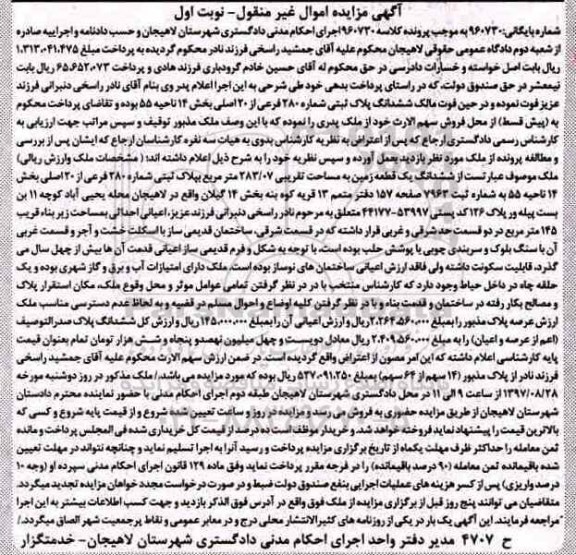 آگهی مزایده اموال غیر منقول- نوبت اول
شماره بایگانی: ۹۶۰۷۳۰ به موجب پرونده کلاسه ۹۶۰۷۳۰ اجرای احکام مدنی دادگستری شهرستان لاهیجان و حسب دادنامه و اجراییه صادره
از شعبه دوم دادگاه عمومی حقوقی لاهیجان محکوم علیه آقای جمشید راسخی فرزند نادر محکوم گردیده به پرداخت مبلغ ۱،۳۱۳،۰۴۱،۴۷۵
ریال بابت اصل خواسته و خسارات دادرسی در حق محکوم له آقای حسین خادم گرودباری فرزند هادی و پرداخت ۶۵،۶۵۲،۰۷۳ ریال بابت
نیمعشر در حق صندوق دولت، که در راستای پرداخت بدهی خود طی شرحی به این اجرا اعلام پدر وی بنام آقای نادر راسخی دنبرانی فرزند
عزیز فوت نموده و در حین فوت مالک ششدانگ پلاک ثبتی شماره ۲۸۰ فرعی از ۲۰ اصلی بخش ۱۴ ناحیه ۵۵ بوده و تقاضای پرداخت محکوم
به (پیش قسط) از محل فروش سهم الارث خود از ملک پدری را نموده که با این وصف ملک مذبور توقیف و سپس مراتب جهت ارزیابی به
کارشناس رسمی دادگستری ارجاع که پس از اعتراض به نظریه کارشناس بدوی به هیات سه نفره کارشناسان ارجاع که ایشان پس از بررسی
و مطالعه پرونده از ملک مورد نظر بازدید بعمل آورده و سپس نظریه خود را به شرح ذیل اعلام داشته اند: ( مشخصات ملک وارزش ریالی)
ملک موصوف عبارتست از ششدانگ یک قطعه زمین به مساحت تقریبی ۲۸۳/۰۷ متر مربع بپلاک ثبتی شماره ۲۸۰ فرعی از ۲۰ اصلی بخش
۱۴ ناحیه ۵۵ به شماره ثبت ۷۹۶۳ صفحه ۱۵۷ دفتر متمم ۱۳ قریه کوه بنه بخش ۱۴ گیلان واقع در لاهیجان محله یحیی آباد کوچه ۱۱ بن
بست پیله ور پلاک ۱۲۶ کد پستی ۵۳۹۹۷-۴۴۱۷۷ متعلق به مرحوم نادر راسخی دنبرانی فرزند عزیز، اعیانی احداثی بمساحت زیر بناء قریب
۱۴۵ متر مربع در دو قسمت حد شرقی و غربی قرار داشته که در قسمت شرقی، ساختمان قدیمی ساز با اسکلت خشت و آجر و قسمت غربی
آن با سنگ بلوک و سربندی چوبی با پوشش حلب بوده است، با توجه به شکل و فرم قدیمی ساز اعیانی قدمت آن ها بیش از چهل سال می
گذرد، قابلیت سکونت داشته ولی فاقد ارزش اعیانی ساختمان های نوساز بوده است. ملک دارای امتیازات آب و برق و گاز شهری بوده و یک
حلقه چاه در داخل حیاط وجود دارد که کارشناس منتخب با در نظر گرفتن تمامی عوامل موثر و محل وقوع ملک، مکان استقرار پلاک
و مصالح بکار رفته در ساختمان و قدمت بناء و با در نظر گرفتن کلیه اوضاع و احوال مسلم در قضیه و به لحاظ عدم دسترسی مناسب ملک
ارزش عرصه پلاک مذبور را بمبلغ ۲،۲۶۴،۵۶۰،۰۰۰ ریال و ارزش اعیانی آن را بمبلغ ۱۴۵،۰۰۰،۰۰۰ ریال و ارزش کل ششدانگ پلاک صدرالتوصیف
(اعم از عرصه و اعیان) را به مبلغ ۲،۴۰۹،۵۶۰،۰۰۰ ریال معادل دویست و چهل میلیون نهصد و پنجاه و شش هزار تومان تمام بعنوان قیمت
پایه کارشناسی اعلام داشته که این امر مصون از اعتراض واقع گردیده است. در ضمن ارزش سهم الارث محکوم علیه آقای جمشید راسخی
فرزند نادر از پلاک مذبور (۱۴ سهم از ۶۴ سهم) بمبلغ ۵۲۷،۰۹۱،۲۵۰ ریال بوده که مورد مزایده می باشد./ ملک مذکور در روز دوشنبه مورخه
۱۳۹۷/۰۸/۲۸ از ساعت ۹ الی ۱۱ در محل دادگستری شهرستان لاهیجان طبقه دوم اجرای احکام مدنی با حضور نماینده محترم دادستان
شهرستان لاهیجان از طریق مزایده حضوری به فروش می رسد و مزایده در روز و ساعت تعیین شده شروع و از قیمت پایه شروع و کسی که
بالاترین قیمت را پیشنهاد نماید فروخته خواهد شد. و خریدار موظف است ده درصد از قیمت کل خریداری شده فی المجلس پرداخت و مانده
ثمن معامله را حداکثر ظرف مهلت یکماه از تاریخ برگزاری مزایده پرداخت و رسید آنرا به اجرا تسلیم نماید و چنانچه نتواند در مهلت تعیین
شده باقیمانده ثمن معامله (۹۰ درصد باقیمانده) را در فرجه مقرر پرداخت نماید وفق ماده ۱۲۹ قانون اجرای احکام مدنی سپرده او (وجه ۱۰
درصد واریزی) پس از کسر هزینه های عملیات اجرایی بنفع صندوق دولت ضبط و در صورت درخواست مجدد خواهان مزایده تجدید میگردد.
متقاضیان می توانند پنج روز قبل از برگزاری مزایده از ملک فوق واقع در آدرس فوق الذکر بازدید و جهت کسب اطلاعات بیشتر به این اجرا
مراجعه فرمایند. این آگهی یک بار در یکی از روزنامه های کثیرالانتشار محلی درج و در معابر عمومی و نقاط پرجمعیت شهر الصاق میگردد./
ح ۴۷۰۷ مدیر دفتر واحد اجرای احکام مدنی دادگستری شهرستان لاهیجان- خدمتگزار